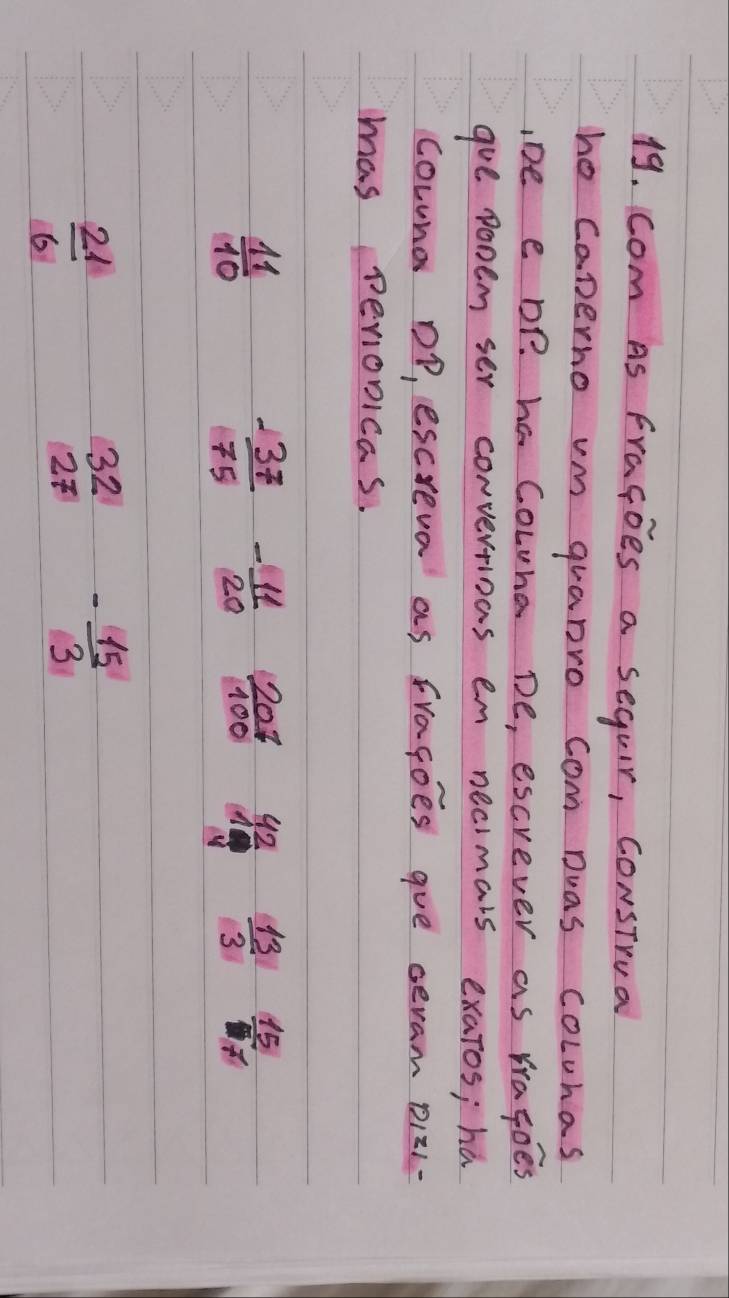 19. Com As frações a seguir, construa
no caderno um quadro com duas colunas
, De e DP. na coluna De, escrever as frações
que podem ser convertidas em decimais exatos; na
coluna DP, escreva as frações que geram dizi-
mas periodicas.
11/10 -37/75 -11/20 207/100 42/4 13/3 15/7
21/6 32/27 -15/3